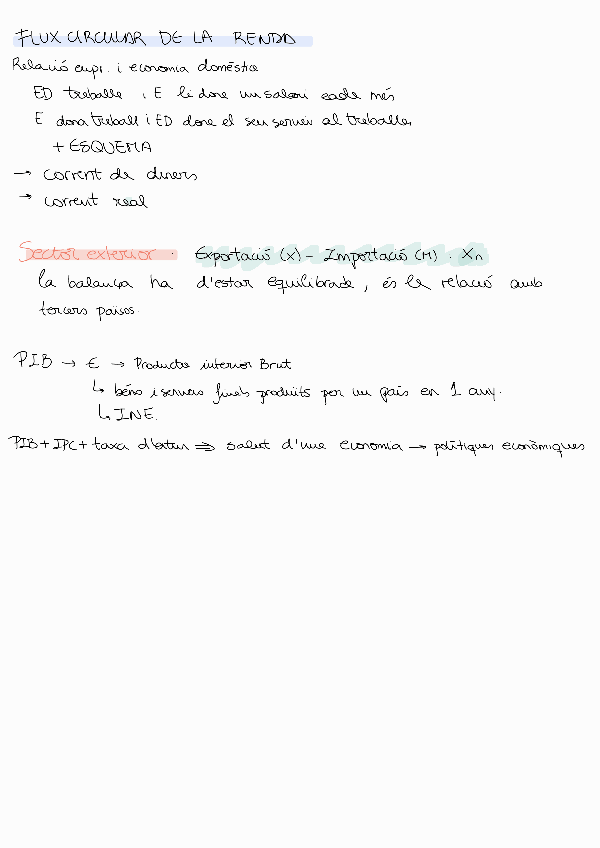 FLUX CIRCULAR DE LA RENDA
Relació empr. i economia domèstica
ED treballa i E li dona un salari cada més
E dona treball i ED dona el seu servei al treballar
+ ESQUEMA
→ corrent de diners
→ corrent real
Sector exterior . Exportació (X) - Importació (M) . Xn
la balança ha d'estar equilibrada, és la relació amb
tercers països.
PIB → € → Producto interior Brut
↳ béns i serveis finals produïts per un país en 1 any.
↳ INE.
PIB + IPC + taxa d'atur ⇒ salut d'una economia → polítiques econòmiques